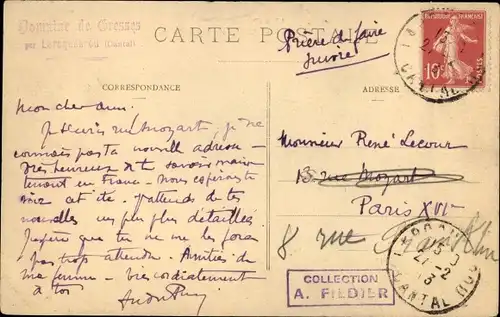 Domaine de Gresses
par Laroquebrou (Cantal)
CARTE POSTALE
Prière de faire
suivre
CORRESPONDANCE
ADRESSE
10c
Mon cher ami.
Je t'écris rue Mozart, je ne
connais pas ta nouvelle adresse
très heureux de te savoir main
tenant en France - Nous espérons te
voir cet été. J'attends de tes
nouvelles un peu plus détaillées.
J'espère que tu ne me les feras
pas trop attendre. Amitiés de
ma femme - bien cordialement
à toi
André
Monsieur René Lecour
13 rue Mozart
Paris XVI
8 rue
COLLECTION
A. FILDIER
CANTAL